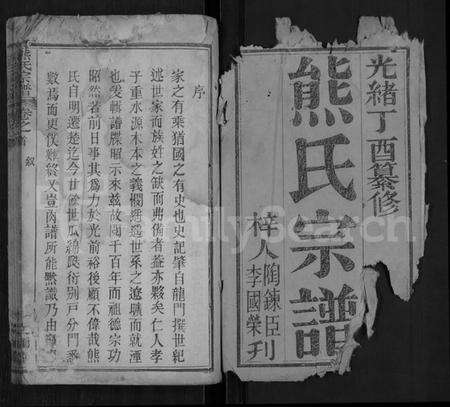 光緒丁酉纂修
熊氏宗譜
梓人陶鍊臣
李國榮刋
序
家之有乗猶國之有史也史記肇自龍門撰世紀
述世家而族姓之
而
備者蓋亦夥矣仁人孝
子重水源木本之義
世系之遼
而就湮
也爰輯譜牒昭示來茲故閱千百年而祖德宗功
昭然若前日事其爲力於光前裕後顧不偉哉熊
氏自明遷楚迄今廿餘世瓜緜
衍別戸分門悉
數爲而更僕難終又豈
譜所能
識乃由
熊氏宗譜
卷之首
叙